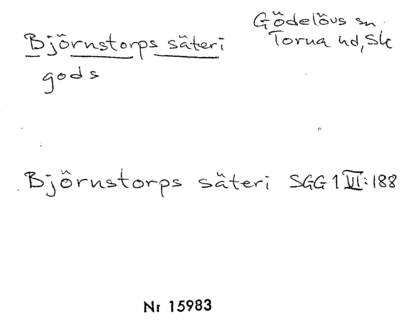 Björnstorps säteri
gods
Gödelövs sn
Torna hd, Sk
Björnstorps säteri SGG 1 VI:188
Nr 15983